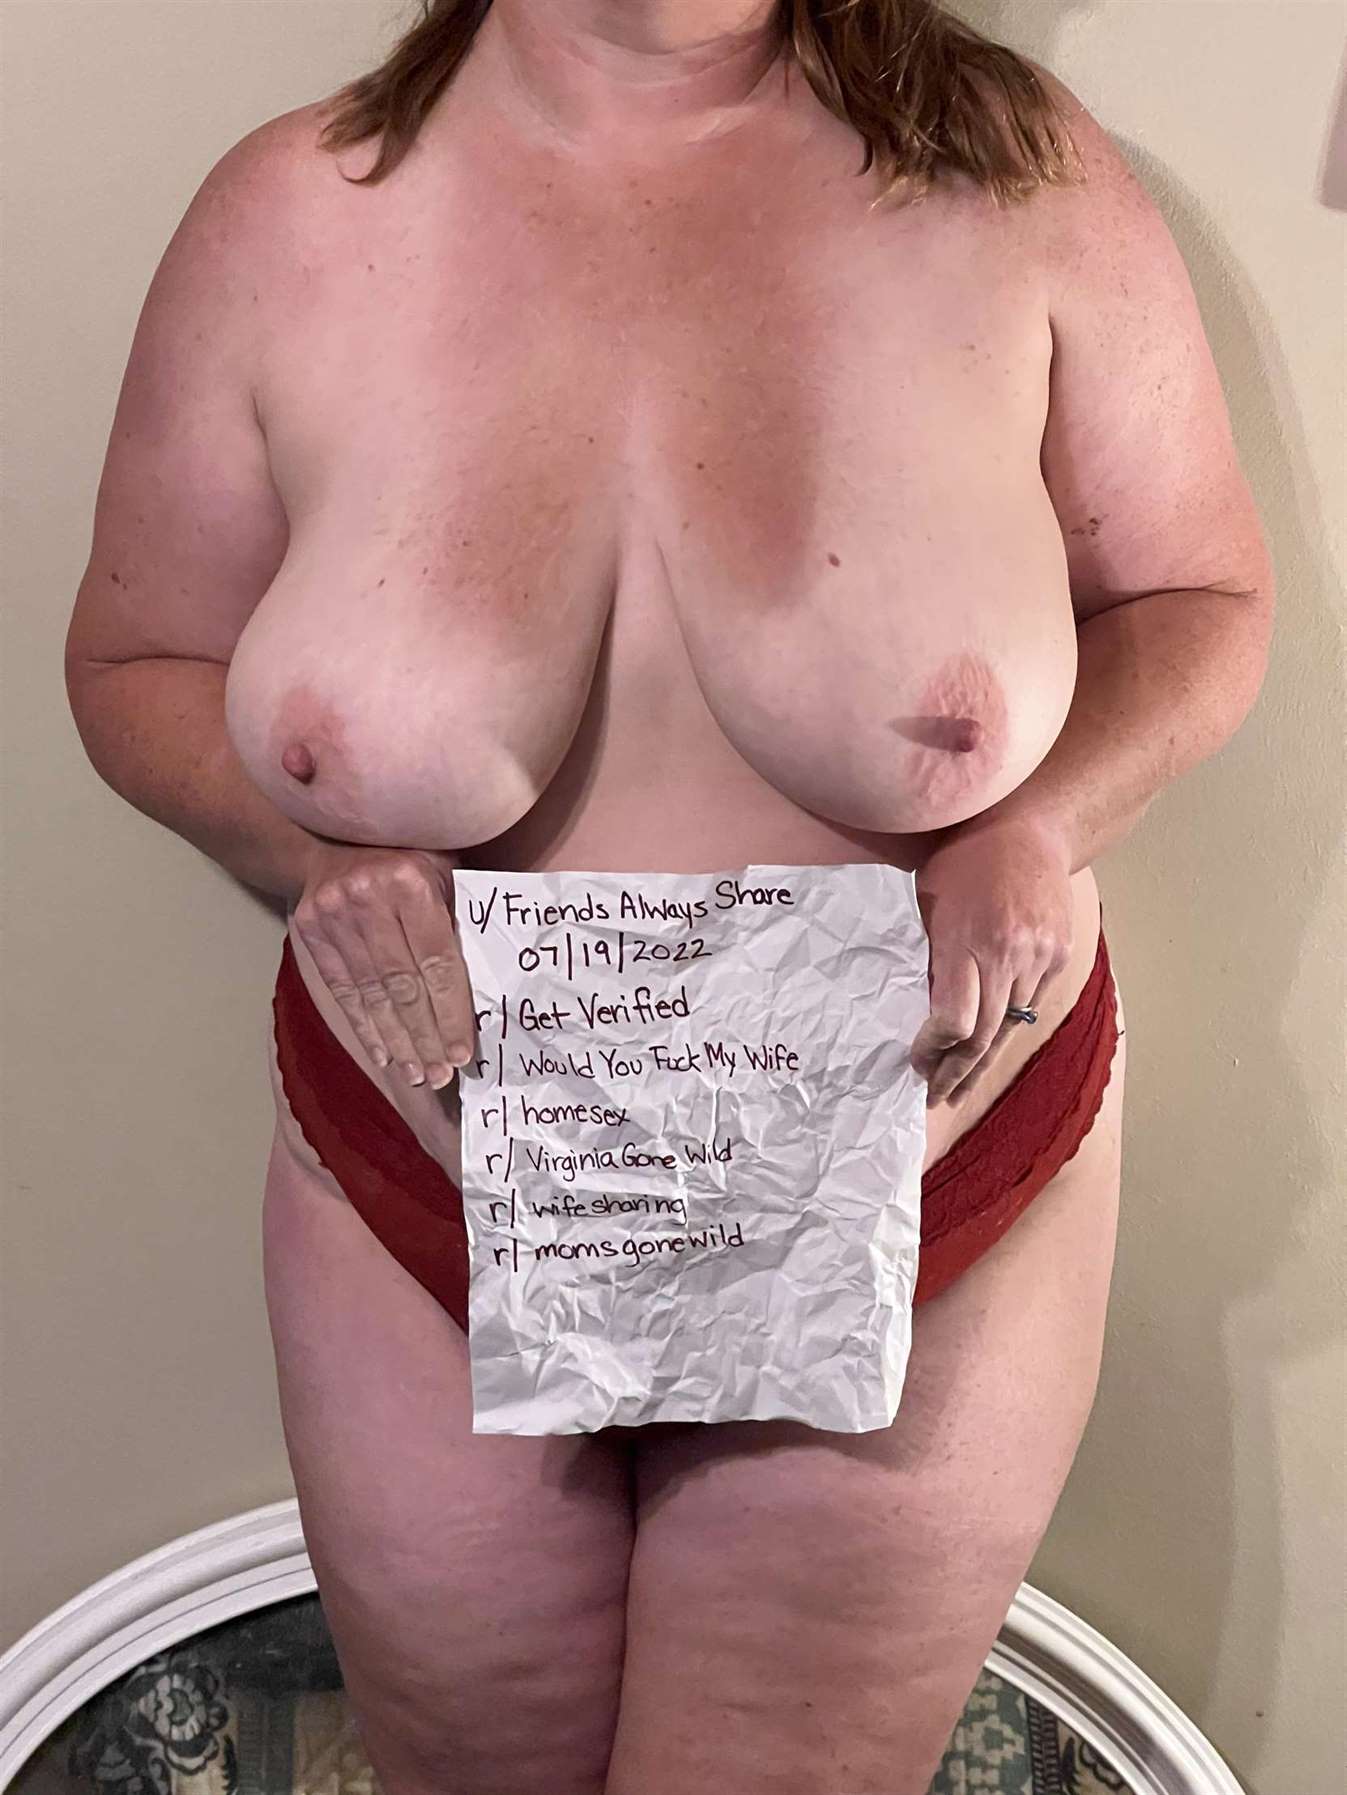 u/Friends Always Share
07/19/2022
r/Get Verified
r/Would You Fuck My Wife
r/homesex
r/Virginia Gone Wild
r/wifesharing
r/momsgonewild